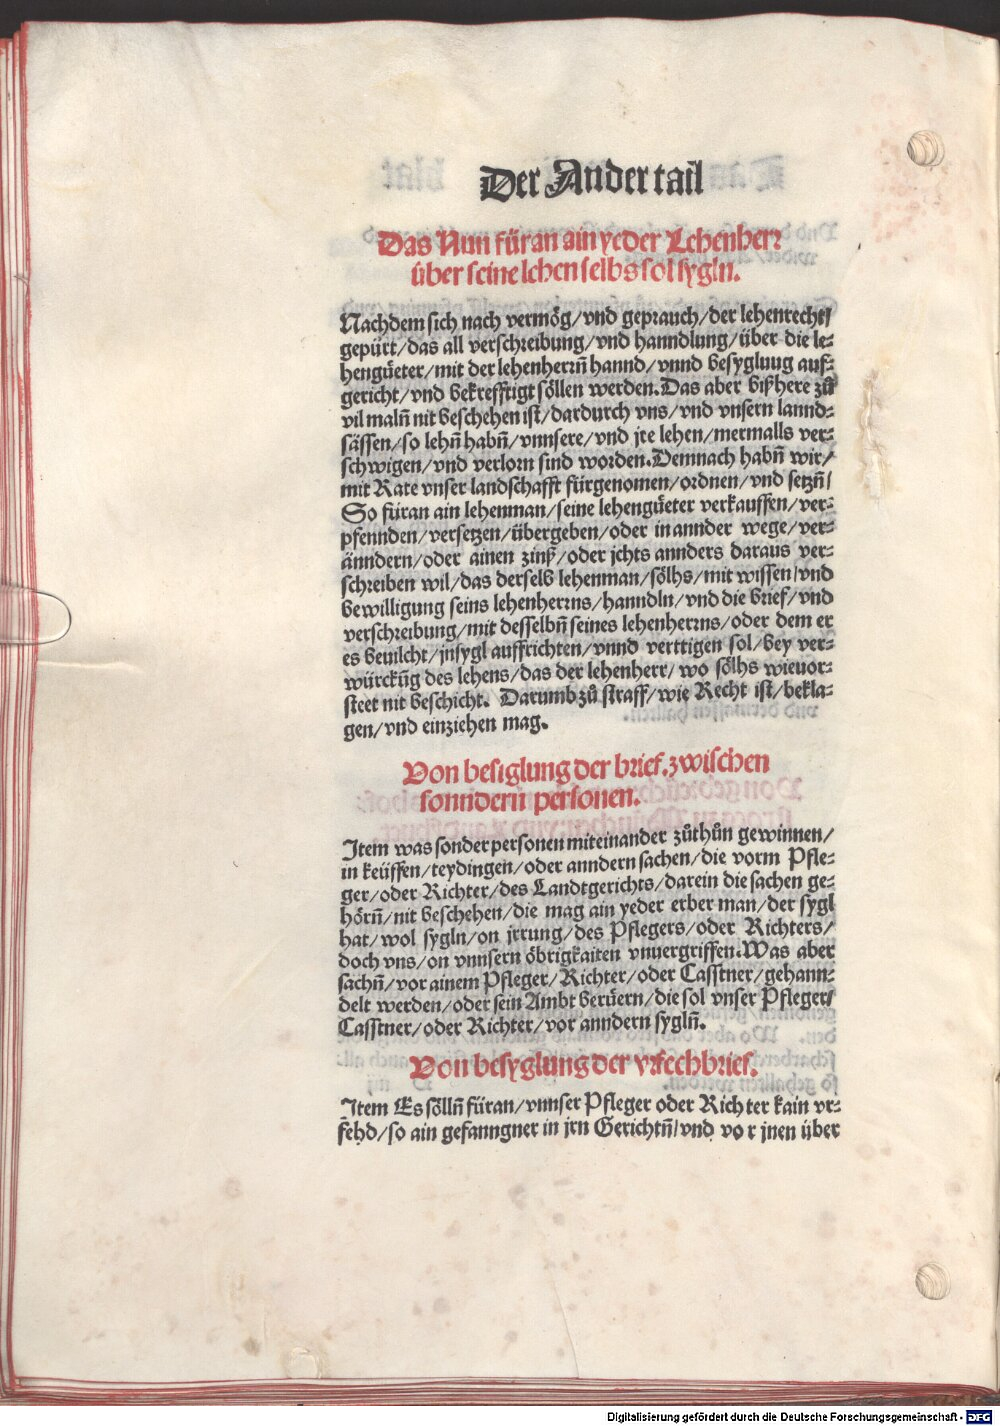 Der Ander tail
Das Nun füran ain yeder Lehenherr
über seine lehen selbs sol sygln.
Nachdem sich nach vermög/vnd geprauch/der lehenrecht/
gepürt/das all verschreibung/vnd hanndlung/über die le⸗
hengüeter/mit der lehenherrn̄ hannd/vnnd besygluug auf⸗
gericht/vnd bekrefftigt söllen werden. Das aber bißhere zů
vil maln̄ nit beschehen ist/dardurch vns/vnd vnsern lannd⸗
sässen/so lehn̄ habn̄/vnnsere/vnd jre lehen/mermalls ver⸗
schwigen/vnd verlorn sind worden. Demnach habn̄ wir/
mit Rate vnser landschafft fürgenomen/ordnen/vnd setzn̄/
So füran ain lehenman/seine lehengüeter verkauffen/ver⸗
pfennden/versetzen/übergeben/oder in annder wege/ver⸗
änndern/oder ainen zinß/oder jchts annders daraus ver⸗
schreiben wil/das derselb lehenman/sölhs/mit wissen/vnd
bewilligung seins lehenherrns/hanndln/vnd die brief/vnd
verschreibung/mit desselbn̄ seines lehenherrns/oder dem er
es beuilcht/jnsygl auffrichten/vnnd verttigen sol/bey ver⸗
würckūg des lehens/das der lehenherr/wo sölhs wieuor⸗
steet nit beschicht. Darumb zů straff/wie Recht ist/bekla⸗
gen/vnd einziehen mag.
Von besiglung der brief. zwischen
sonndern personen.
Item was sonder personen miteinander zůthůn gewinnen/
in keüffen/teydingen/oder anndern sachen/die vorm Pfle⸗
ger/oder Richter/des Landtgerichts/darein die sachen ge⸗
hörn̄/nit beschehen/die mag ain yeder erber man/der sygl
hat/wol sygln/on jrrung/des Pflegers/oder Richters/
doch vns/on vnnsern öbrigkaiten vnuergriffen. Was aber
sachn̄/vor ainem Pfleger/Richter/oder Casstner/gehann⸗
delt werden/oder sein Ambt berüern/die sol vnser Pfleger/
Casstner/oder Richter/vor anndern sygln̄.
Von besyglung der vrfechbrief.
Item Es sölln̄ füran/vnnser Pfleger oder Richter kain vr⸗
fehd/so ain gefanngner in jrn Gerichtn̄/vnd vor jnen über
Digitalisierung gefördert durch die Deutsche Forschungsgemeinschaft - DFG